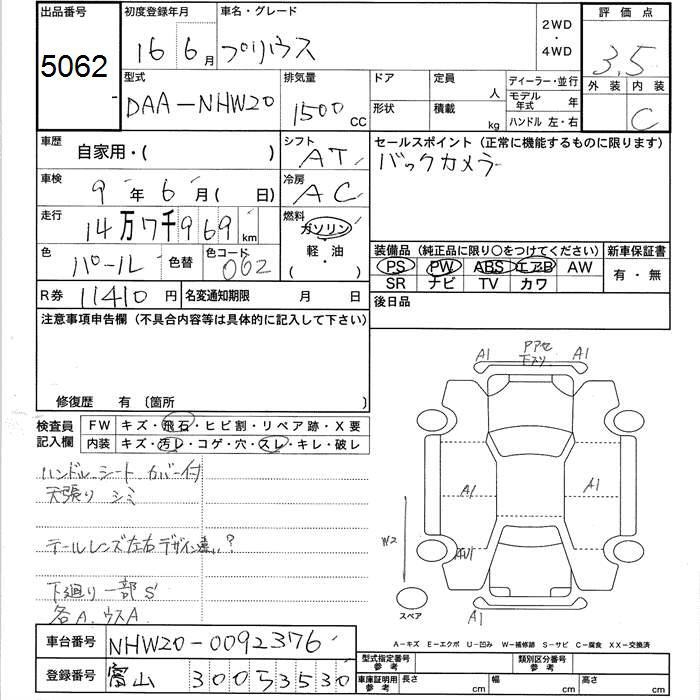 出品番号 初度登録年月 車名・グレード 2WD・4WD 評価点
5062 16 6月 プリウス 3.5
型式 排気量 ドア 定員 人 ディーラー・並行 外装 内装
DAA-NHW20 1500 CC 形状 積載 kg モデル年式 年 C
ハンドル 左・右
車歴 自家用・( ) シフト AT セールスポイント（正常に機能するものに限ります）
バックカメラ
車検 9年6月( 日) 冷房 AC
走行 14万7千969 km 燃料 ガソリン
軽・油
( ・ )
色 パール 色替 色コード 062
装備品（純正品に限り○をつけてください） 新車保証書
PS PW ABS エアB AW 有・無
SR ナビ TV カワ
R券 11410円 名変通知期限 月 日 後日品
注意事項申告欄（不具合内容等は具体的に記入して下さい）
修復歴 有〔箇所 〕
検査員記入欄 FW キズ・飛石・ヒビ割・リペア跡・X要
内装 キズ・汚レ・コゲ・穴・スレ・キレ・破レ
ハンドル、シート カバー付
天張り シミ
テールレンズ左右デザイン違い?
下廻り一部S
各A、ウスA
A1 A1
A1 A1
W2
スペア A1
A-キズ E-エクボ U-凹み W-補修跡 S-サビ C-腐食 XX-交換済
車台番号 NHW20-0092376
登録番号 富山 300 5 3530
型式指定番号 参考 類別区分番号 参考
車庫証明用 参考 長さ cm 幅 cm 高さ cm